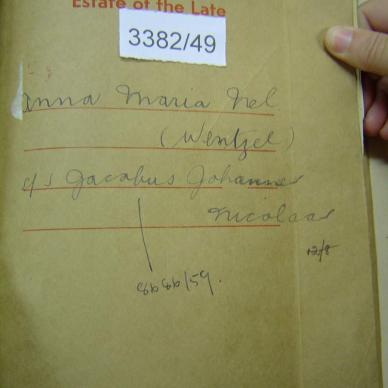 Estate of the Late
3382/49
Anna Maria Nel
(Wentzel)
c/s Jacobus Johannes
Nicolaas
8686/59.